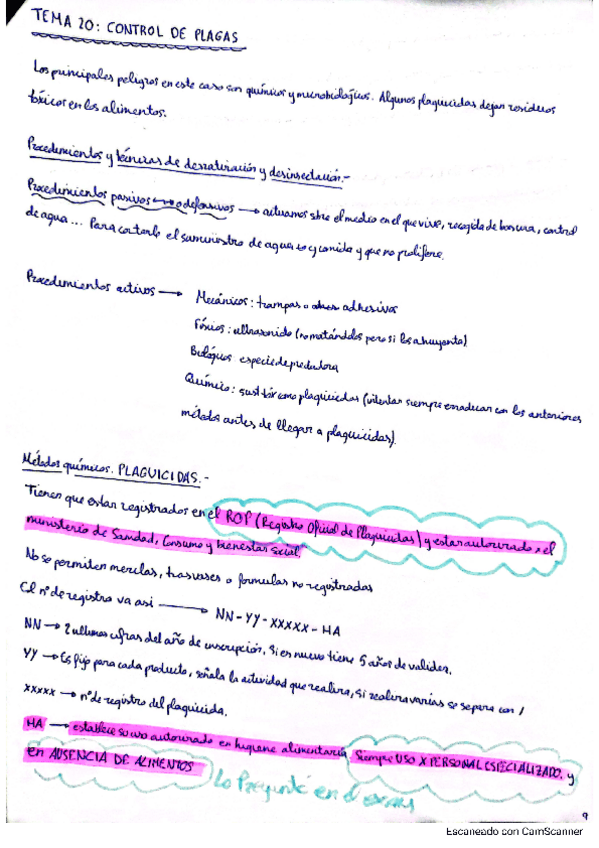 TEMA 20: CONTROL DE PLAGAS
Los principales peligros en este caso son químicos y microbiológicos. Algunos plaguicidas dejan residuos
tóxicos en los alimentos.
Procedimientos y técnicas de desratización y desinsectación.-
Procedimientos pasivos o defensivos → actuamos sbre el medio en el que vive, recogida de basura, control
de agua ... Para cortarle el suministro de agua y comida y que no prolifere.
Procedimientos activos → Mecánicos: trampas o adhesivos
Físicos: ultrasonido (no matándolos pero si los ahuyenta)
Biológicos especie depredadora
Químico: sust tóx como plaguicidas (intentar siempre erradicar con los anteriores
métodos antes de llegar a plaguicidas).
Métodos químicos. PLAGUICIDAS.-
Tienen que estar registrados en el ROP (Registro Oficial de Plaguicidas) y estar autorizado x el
ministerio de Sanidad, Consumo y bienestar social.
No se permiten mezclas, trasvases o formulas no registradas
El nº de registro va asi → NN-YY-XXXXX-HA
NN → 2 ultimas cifras del año de inscripción, si es nuevo tiene 5 años de validez.
YY → Es fijo para cada producto, señala la actividad que realiza, si realiza varias se separa con /
XXXXX → nº de registro del plaguicida.
HA → establece su uso autorizado en higiene alimentaria, siempre USO X PERSONAL ESPECIALIZADO. y
en AUSENCIA DE ALIMENTOS Lo Pregunté en el examen
9
Escaneado con CamScanner